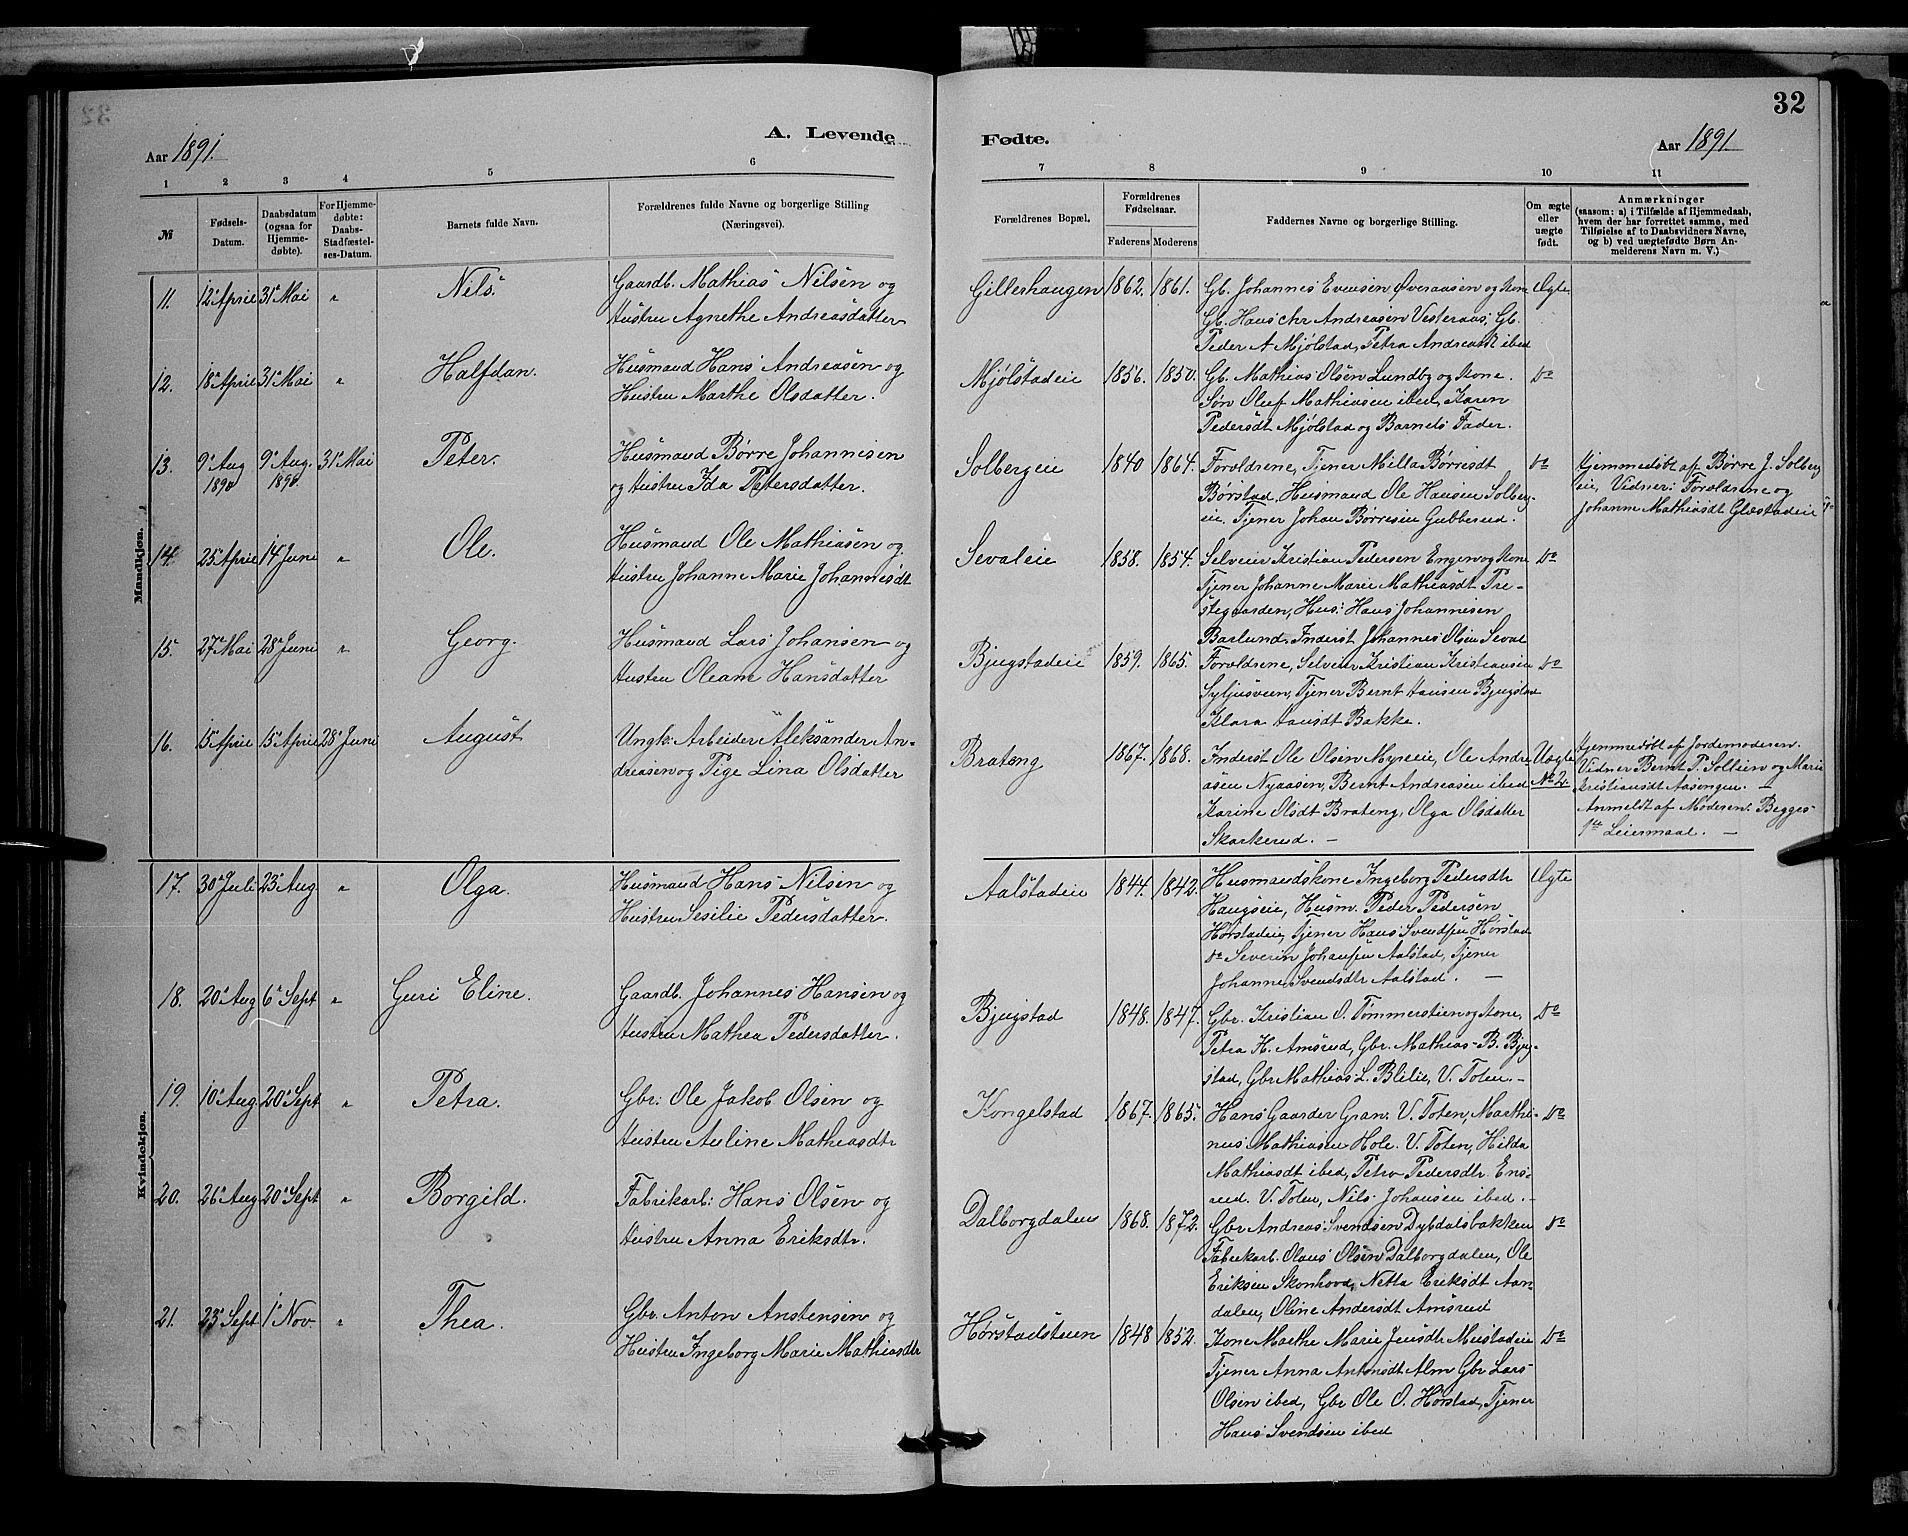 32
A. Levende Fødte.
Aar 1891.
Aar 1891
1 2 3 4 5 6 7 8 9 10 11
№
Fødsels-
Datum.
Daabsdatum
(ogsaa for
Hjemme-
døbte).
For Hjemme-
døbte:
Daabs-
Stadfæstel-
ses-Datum.
Barnets fulde Navn.
Forældrenes fulde Navne og borgerlige Stilling
(Næringsvei).
Forældrenes Bopæl.
Forældrenes
Fødselsaar.
Faderens Moderens
Faddernes Navne og borgerlige Stilling.
Om ægte
eller
uægte
født.
Anmærkninger
(saasom: a) i Tilfælde af Hjemmedaab,
hvem der har forrettet samme, med
Tilføielse af to Daabsvidners Navne,
og b) ved uægtefødte Børn An-
melderens Navn m. V.)
Mandkjøn.
11. 12' April 31' Mai " Nils. Gaardb. Mathias Nilsen og
Hustru Agnethe Andreasdatter
Gillerhaugen 1862. 1861. Gb. Johannes Evensen Øveraasen og Kone Ægte
Gb. Hans Chr Andreasen Vesteraas, Gb.
Peder A Mjølstad, Petra Andreasdt ibed
12. 18' April 31' Mai " Halfdan. Husmand Hans Andreasen og
Hustru Marthe Olsdatter.
Mjølstadeie 1856. 1850. Gb. Mathias Olsen Lundby og Kone. Do
Søn Oluf Mathiasen ibed, Karen
Pedersdt Mjølstad og Barnets Fader.
13. 9' Aug 1890 9' Aug. 1890. 31' Mai Peter. Husmand Børre Johannesen
og Hustru Ida Petersdatter.
Solbergeie 1840 1864. Forældrene, Tjener Milla Børresdt Do
Børstad, Husmand Ole Hansen Solberg-
eie. Tjener Johan Børresen Gubberud.
Hjemmedøbt af Børre J. Solberg
eie, Vidner: Forældrene og
Johanne Mathiasdt Glæstadeie
14. 25' April 14' Juni " Ole. Husmand Ole Mathiasen og
Hustru Johanne Marie Johannesdt
Sevaleie 1858. 1854. Selveier Kristian Pedersen Engen og Kone Do
Tjener Johanne Marie Mathiasdt Pre-
stegaarden, Hus: Hans Johannesen
Barlund. Inderst Johannes Olsen Seval
15. 27' Mai 28' Juni " Georg. Husmand Lars Johansen og
Hustru Oleane Hansdatter
Bjugstadeie 1859. 1865. Forældrene, Selveier Kristian Kristiansen Do
Syljusveen, Tjener Bernt Hansen Bjugstad
Klara Hansdt Bakke.
16. 15' April 15' April 28' Juni August Ungk: Arbeider Aleksander An-
dreasen og Pige Lina Olsdatter
Brateng 1867. 1868. Inderst Ole Olsen Myreie, Ole Andre Uægte
asen Nyaasen, Bernt Andreasen ibed № 2.
Karine Olsdt Brateng, Olga Olsdatter
Skarkerud. —
Hjemmedøbt af Jordemoderen.
Vidner Bernt P. Sollien og Marie
Kristiansdt Aasengen. —
Anmeldt af Moderen. Begges
1ste Leiermaal. —
Kvindekjøn.
17. 30' Juli 23' Aug " Olga. Husmand Hans Nilsen og
Hustru Sesilie Pedersdatter.
Aalstadeie 1844. 1842. Husmandskone Ingeborg Pedersdtr Ægte
Haugseie, Husm. Peder Pedersen
Hørstadeie, Tjener Hans Svendsen Hørstad
do Severin Johansen Aalstad, Tjener
Johanne Svendsdtr Aalstad. —
18. 20' Aug 6' Sept " Guri Eline. Gaardb. Johannes Hansen og
Hustru Mathea Pedersdatter.
Bjugstad 1848. 1847. Gbr. Kristian O. Tømmerstien og Kone, Do
Petra H. Amsrud, Gbr. Mathias B. Bjug-
stad, Gbr Mathias L. Blilie, V. Toten. —
19. 10' Aug. 20' Sept " Petra. Gbr: Ole Jakob Olsen og
Hustru Auline Mathiasdtr
Kongelstad 1867. 1865. Hans Gaarder Gran. V. Toten, Marthi- Do
nus Mathiasen Hole. V. Toten, Hilda
Mathiasdt ibed, Petra Pedersdtr. Ens-
rud. V. Toten, Nils Johansen ibed. —
20. 26' Aug 20' Sept " Borgild. Fabrikarb: Hans Olsen og
Hustru Anna Eriksdtr.
Dalborgdalen 1868. 1872. Gbr Andreas Svendsen Dybdalsbakken Do
Fabrikarb. Olaus Olsen Dalborgdalen, Ole
Eriksen Skonhovd, Netta Eriksdt Aan-
dalen, Oline Andersdt Amsrud
21. 23' Sept 1' Nov. " Thea. Gbr. Anton Anstensen og
Hustru Ingeborg Marie Mathiasdtr
Hørstadstuen 1848 1852. Kone Marthe Marie Jensdtr Mustadeie Do
Tjener Anna Antonsdt Alm Gbr Lars
Olsen ibed, Gbr Ole O. Hørstad, Tjener
Hans Svendsen ibed